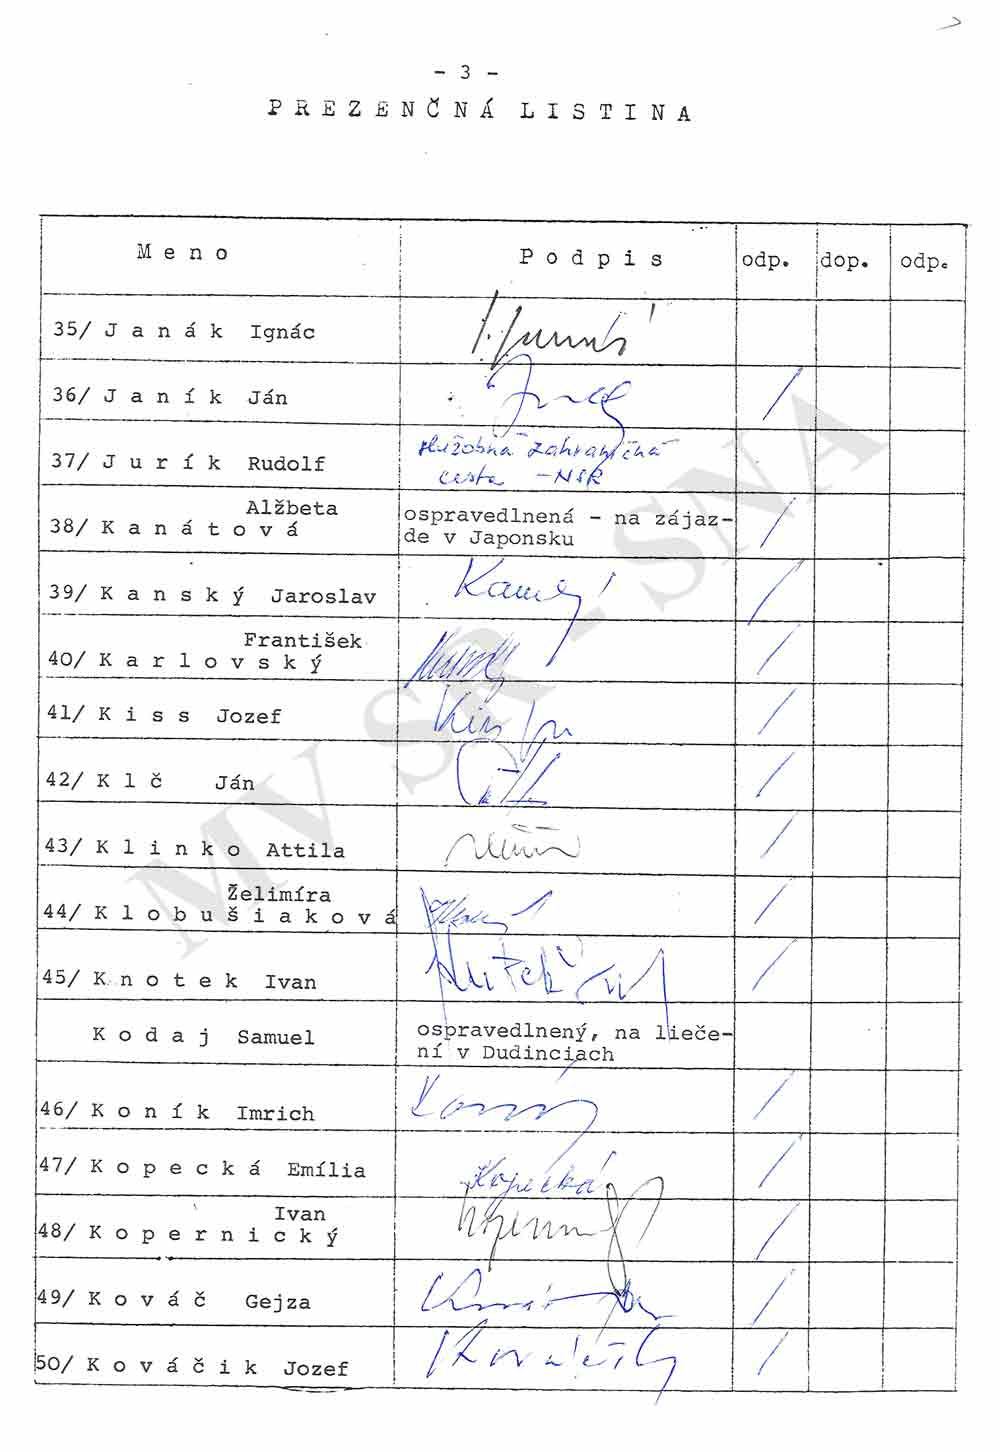 - 3 -
PREZENČNÁ LISTINA
Meno Podpis odp. dop. odp.
35/ Janák Ignác
36/ Janík Ján
37/ Jurík Rudolf služobná zahraničná
cesta - NSR
Alžbeta
38/ Kanátová ospravedlnená - na zájaz-
de v Japonsku
39/ Kanský Jaroslav
František
40/ Karlovský
41/ Kiss Jozef
42/ Klč Ján
43/ Klinko Attila
Želimíra
44/ Klobušiaková
45/ Knotek Ivan
Kodaj Samuel ospravedlnený, na lieče-
ní v Dudinciach
46/ Koník Imrich
47/ Kopecká Emília Kopecká
Ivan
48/ Kopernický
49/ Kováč Gejza
50/ Kováčik Jozef
MV SR - SNA